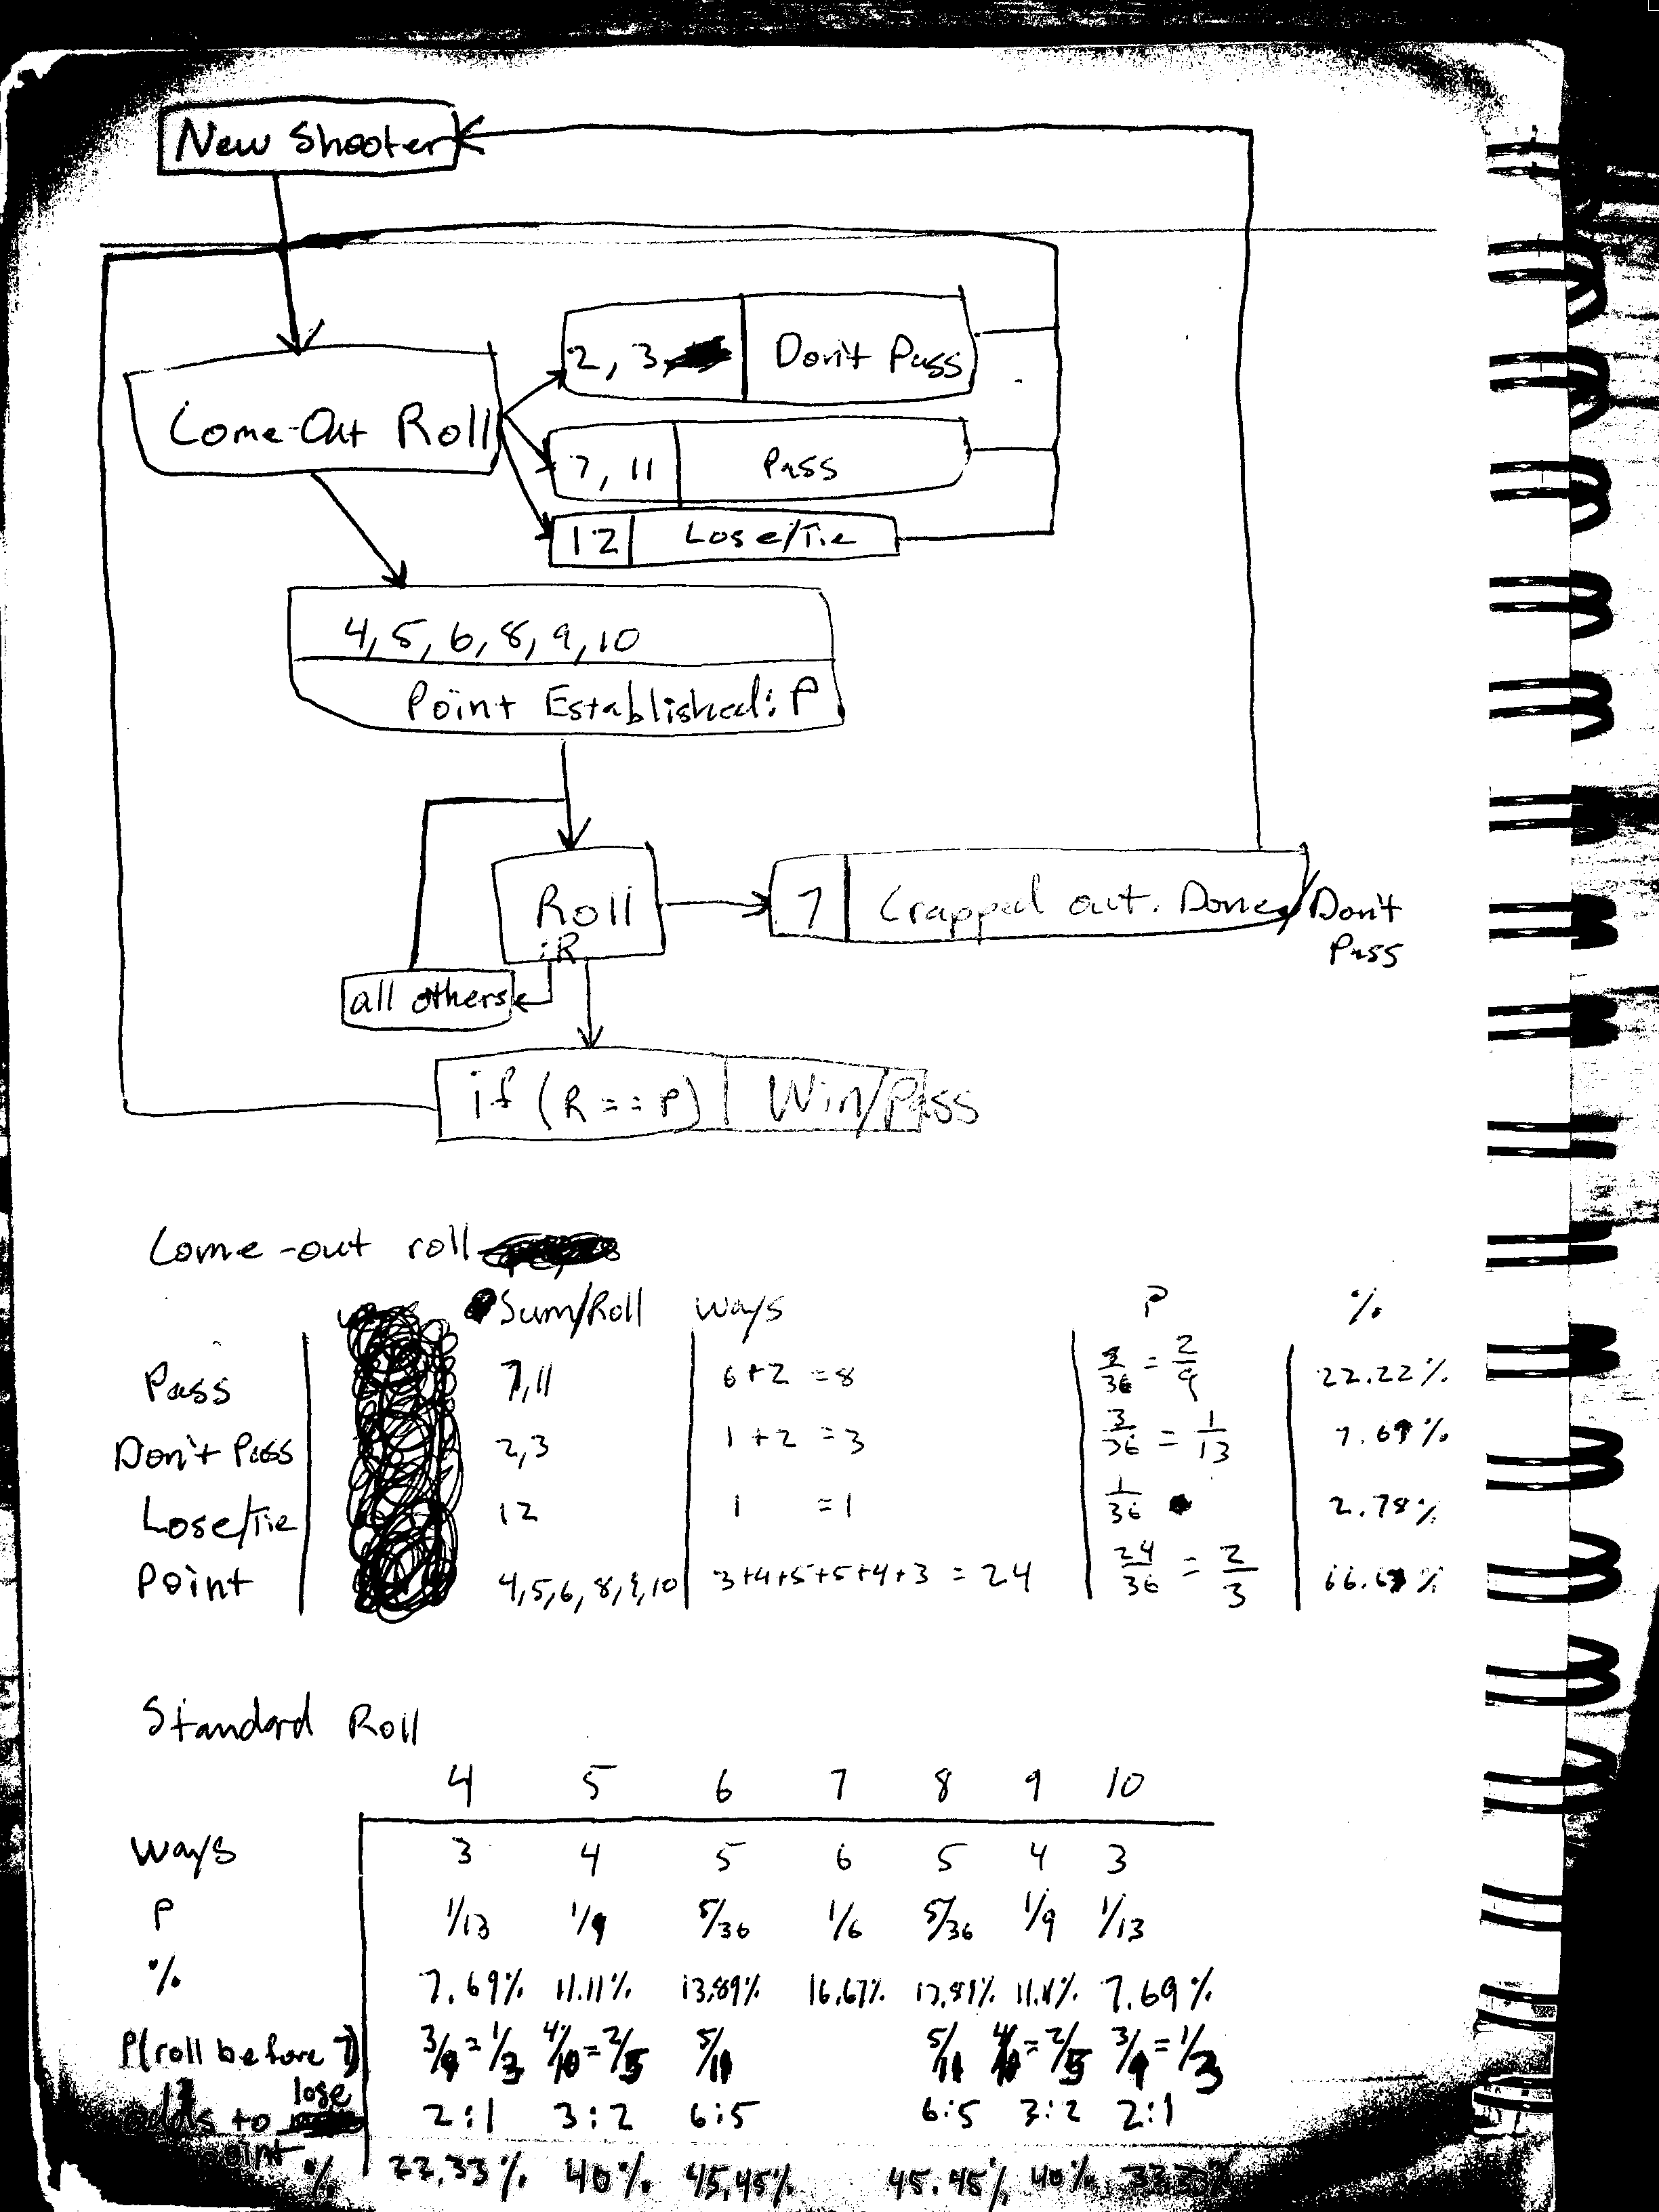 New Shooter
2, 3 Don't Pass
Come-Out Roll
7, 11 Pass
12 Lose/Tie
4, 5, 6, 8, 9, 10
Point Established: P
Roll
:R
7 Crapped out. Done/Don't
Pass
all others
if (R == P) Win/Pass
Come-out roll
Sum/Roll Ways P %
Pass 7, 11 6+2 = 8 8/36 = 2/9 22.22%
Don't Pass 2, 3 1+2 = 3 3/36 = 1/13 7.69%
Lose/Tie 12 1 = 1 1/36 2.78%
Point 4, 5, 6, 8, 9, 10 3+4+5+5+4+3 = 24 24/36 = 2/3 66.67%
Standard Roll
4 5 6 7 8 9 10
Ways 3 4 5 6 5 4 3
P 1/13 1/9 5/36 1/6 5/36 1/9 1/13
% 7.69% 11.11% 13.89% 16.67% 13.89% 11.11% 7.69%
P(roll before 7) 3/9 = 1/3 4/10 = 2/5 5/11 5/11 4/10 = 2/5 3/9 = 1/3
odds to lose 2:1 3:2 6:5 6:5 3:2 2:1
point
% 33.33% 40% 45.45% 45.45% 40% 33.33%